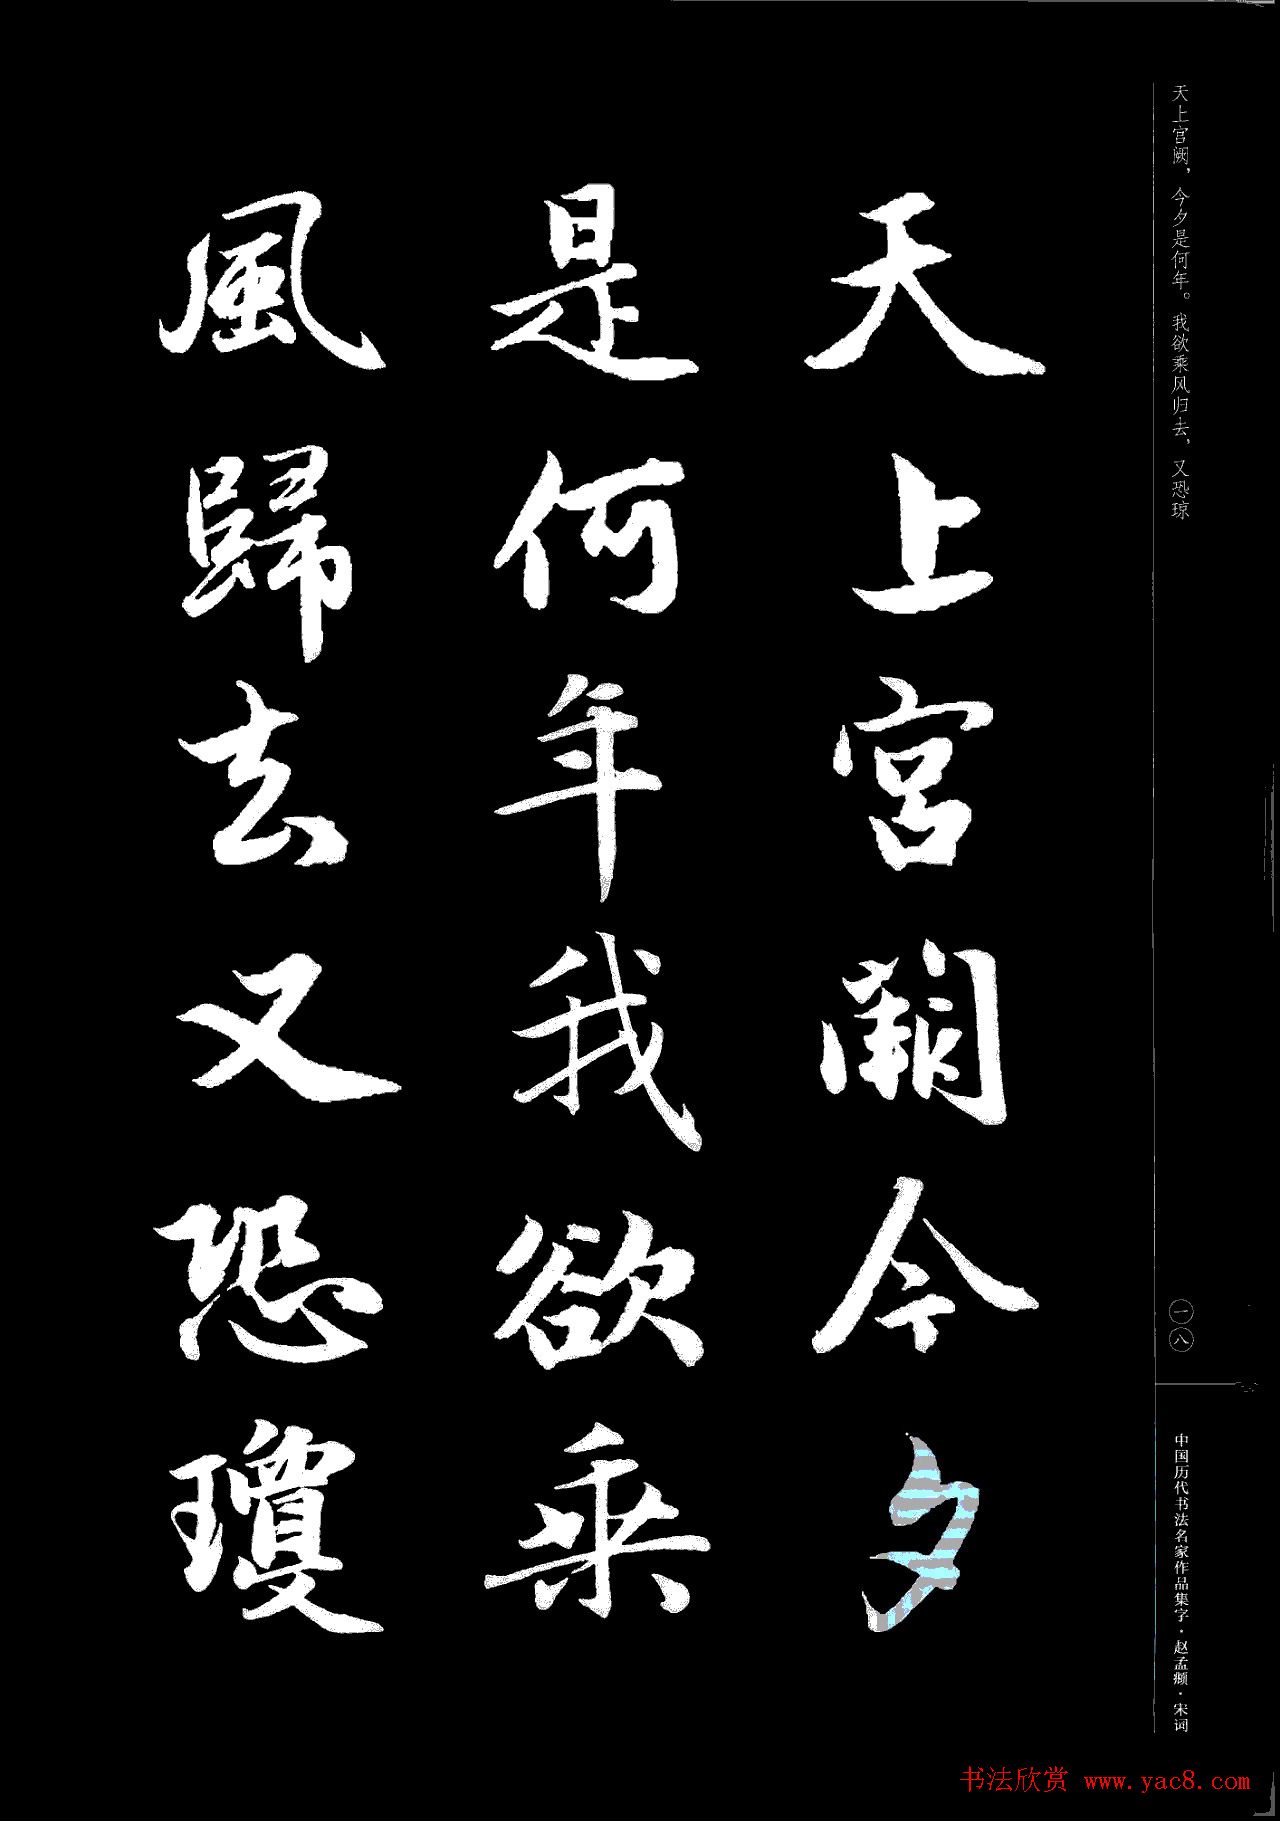 天上宫阙，今夕是何年。我欲乘风归去，又恐琼
天上宮闕今夕
是何年我欲乘
風歸去又恐瓊
一八
中国历代书法名家作品集字·赵孟頫·宋词
书法欣赏 www.yac8.com